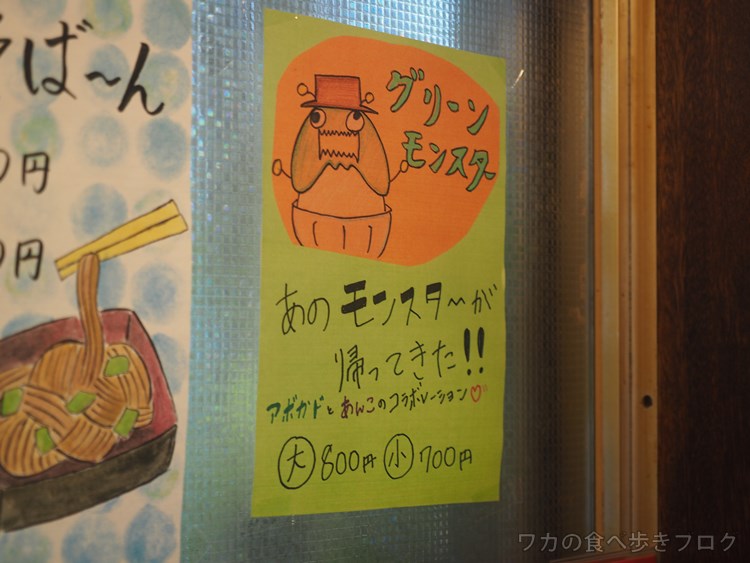 そば〜ん
0円
0円
グリーン
モンスター
あのモンスターが
帰ってきた!!
アボガドとあんこのコラボレーション♡
大 800円 小 700円
ワカの食べ歩きブログ